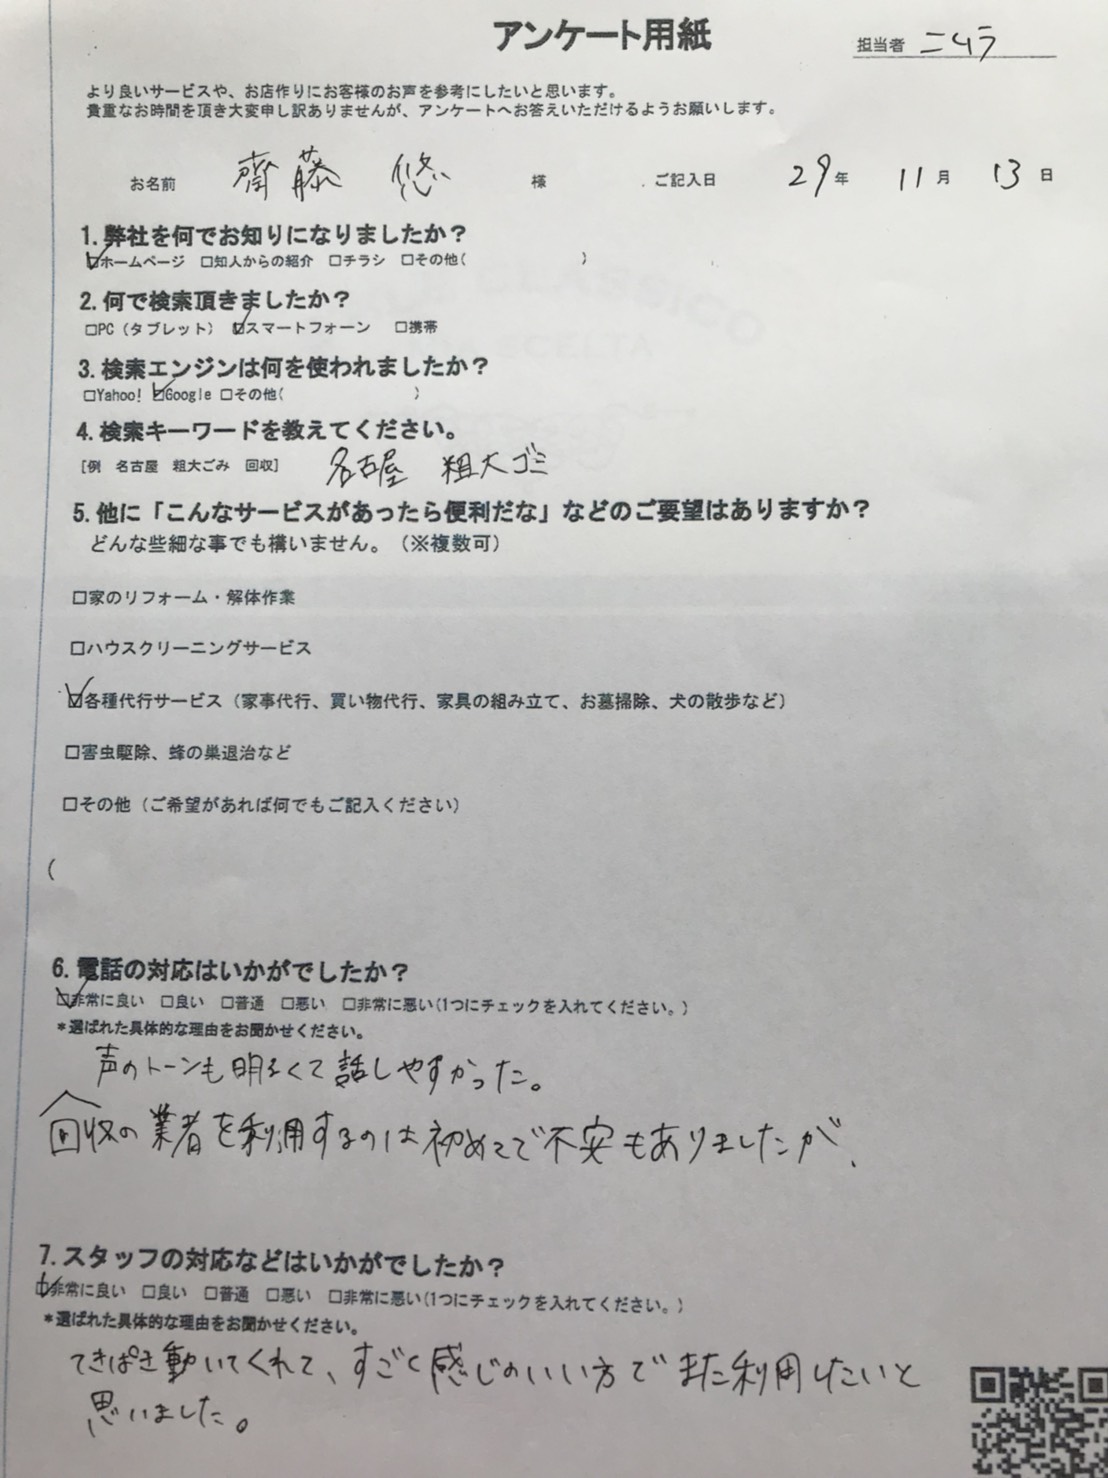 アンケート用紙
担当者 ニムラ
より良いサービスや、お店作りにお客様のお声を参考にしたいと思います。
貴重なお時間を頂き大変申し訳ありませんが、アンケートへお答えいただけるようお願いします。
お名前 齊藤 悠 様 ご記入日 29年 11月 13日
1.弊社を何でお知りになりましたか?
☑ホームページ □知人からの紹介 □チラシ □その他( )
2.何で検索頂きましたか?
□PC(タブレット) ☑スマートフォーン □携帯
3.検索エンジンは何を使われましたか?
□Yahoo! ☑Google □その他( )
4.検索キーワードを教えてください。
[例 名古屋 粗大ごみ 回収] 名古屋 粗大ゴミ
5.他に「こんなサービスがあったら便利だな」などのご要望はありますか?
どんな些細な事でも構いません。(※複数可)
□家のリフォーム・解体作業
□ハウスクリーニングサービス
☑各種代行サービス(家事代行、買い物代行、家具の組み立て、お墓掃除、犬の散歩など)
□害虫駆除、蜂の巣退治など
□その他(ご希望があれば何でもご記入ください)
(
6.電話の対応はいかがでしたか?
☑非常に良い □良い □普通 □悪い □非常に悪い(1つにチェックを入れてください。)
*選ばれた具体的な理由をお聞かせください。
声のトーンも明るくて話しやすかった。
回収の業者を利用するのは初めてで不安もありましたが、
7.スタッフの対応などはいかがでしたか?
☑非常に良い □良い □普通 □悪い □非常に悪い(1つにチェックを入れてください。)
*選ばれた具体的な理由をお聞かせください。
てきぱき動いてくれて、すごく感じのいい方でまた利用したいと
思いました。